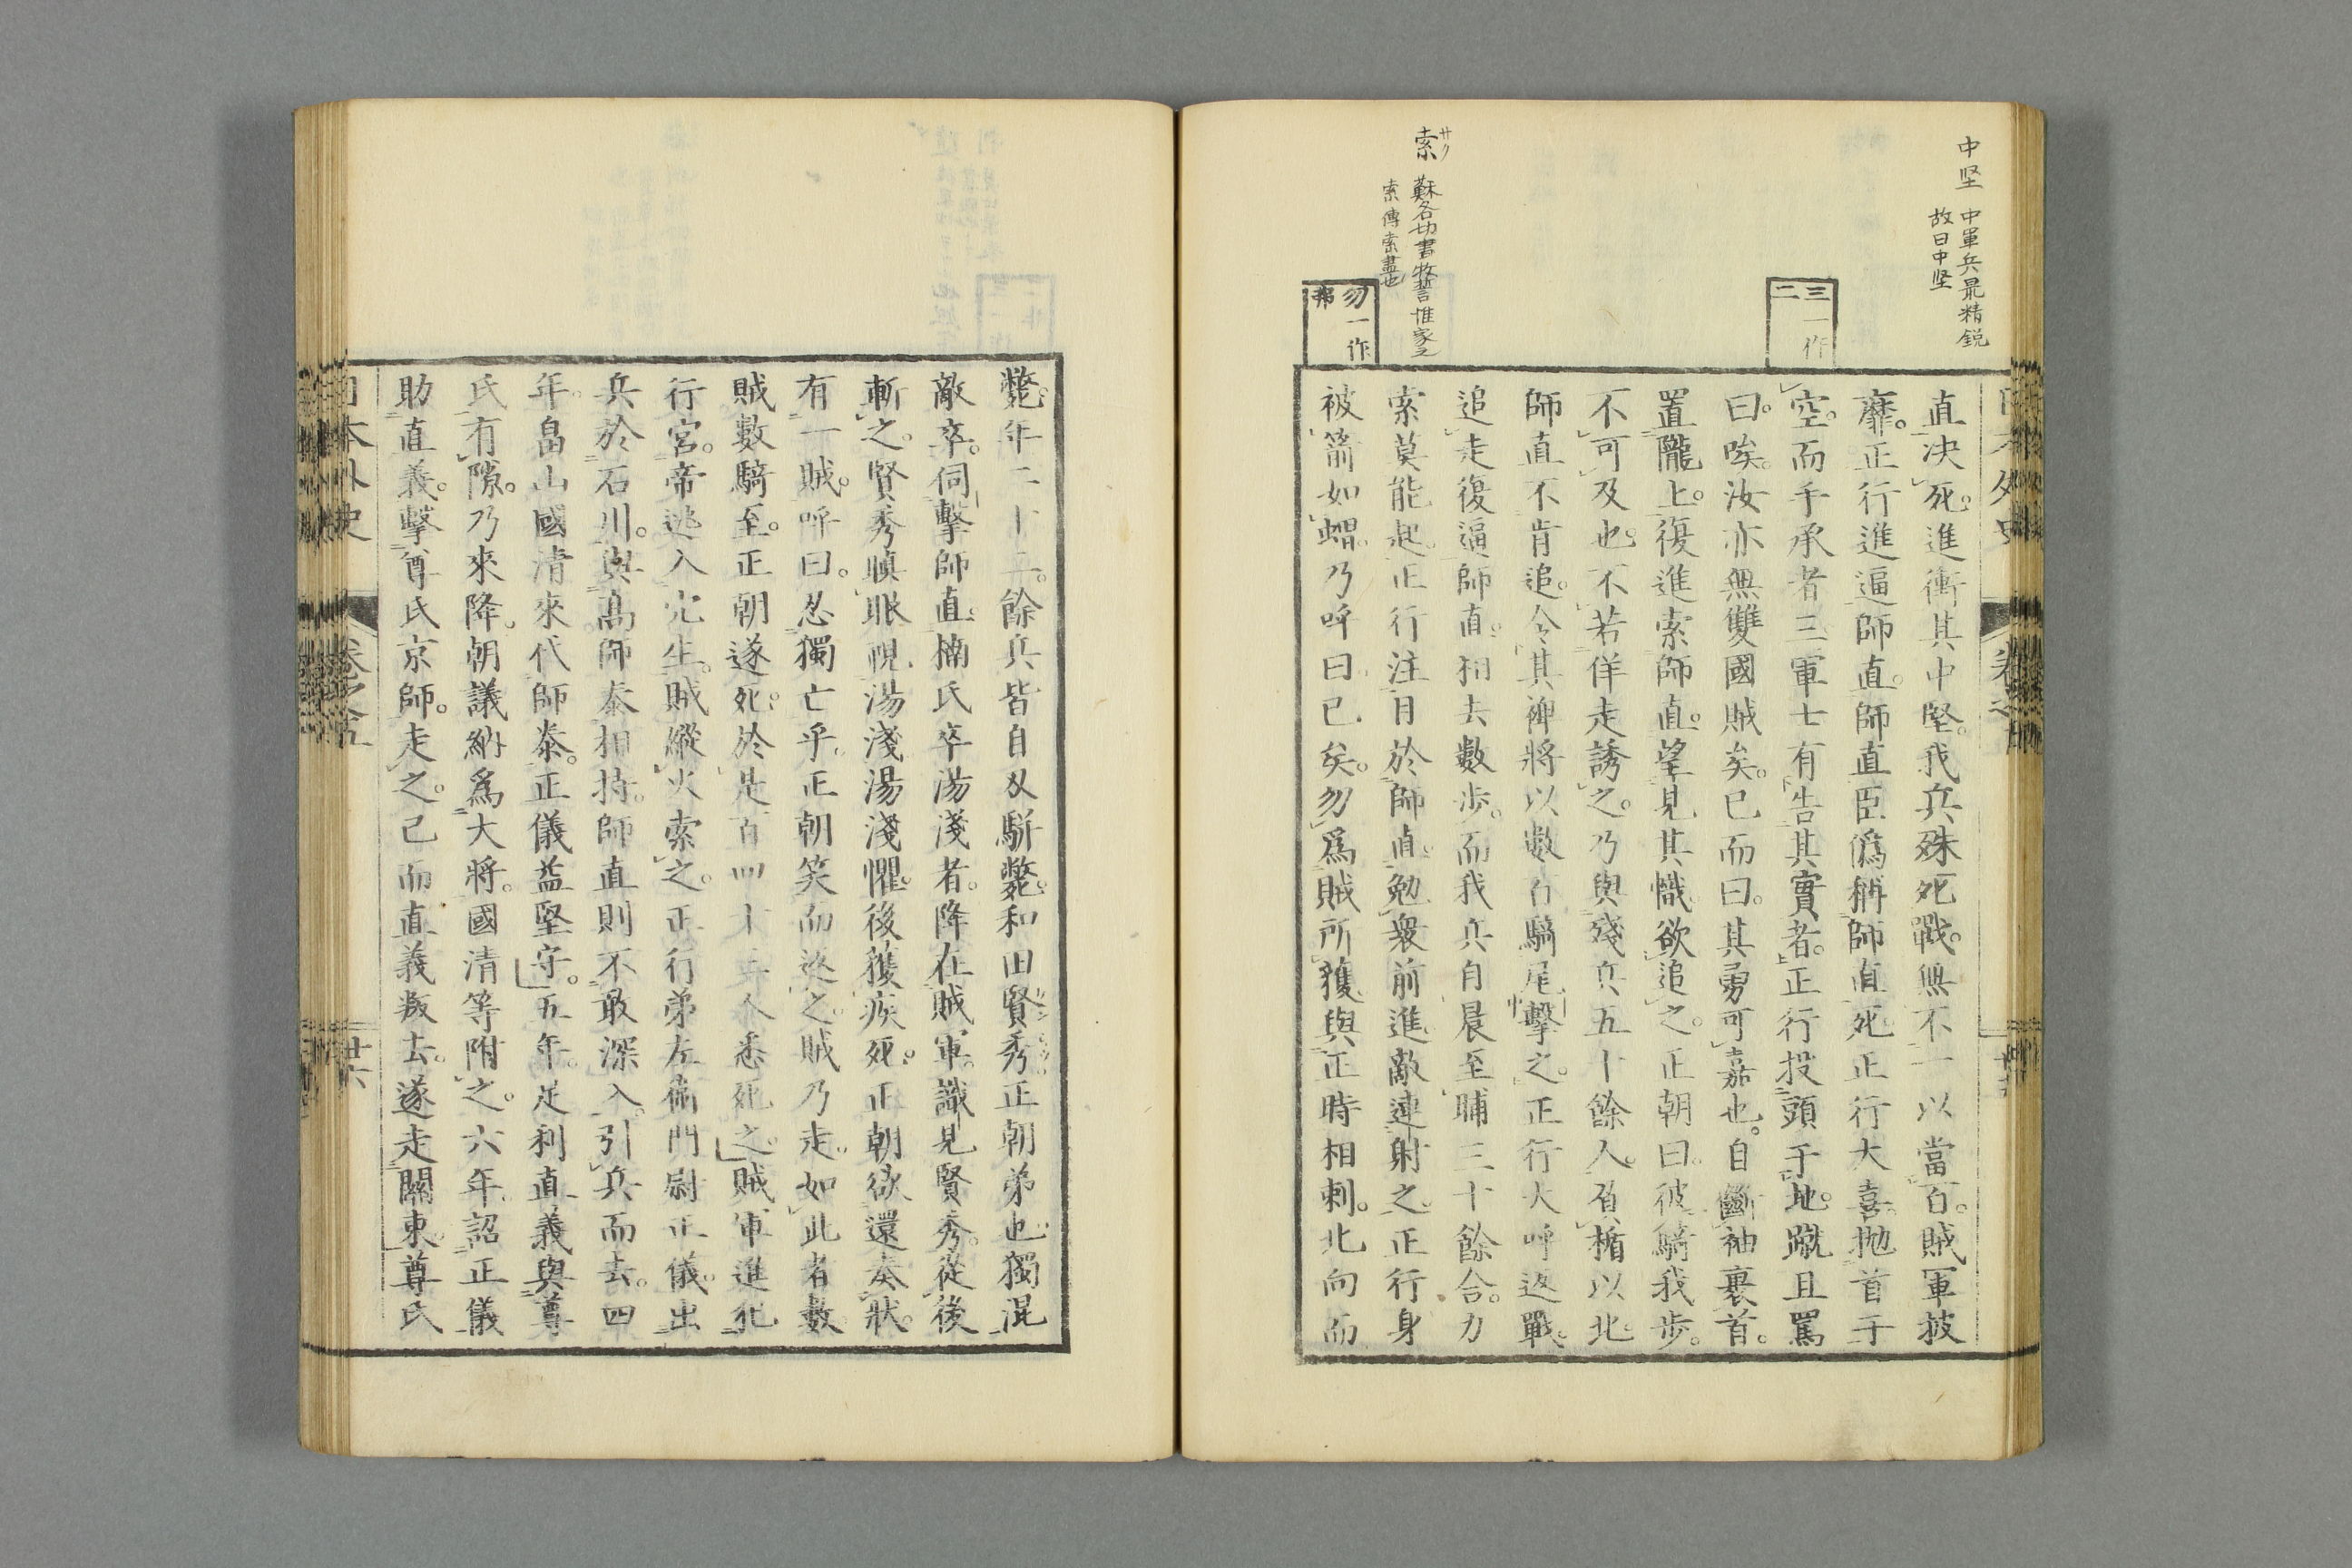 中坚 中軍兵最精鋭
故曰中坚
三一作
二
索 蘇各切書牧誓惟家之
索傳索盡也
勿一作
弗
直決死。進衝其中堅。我兵殊死戰。無不一以當百。賊軍披
靡。正行進逼師直。師直臣僞稱師直死。正行大喜。抛首于
空。而手承者三。軍士有告其實者。正行投頭于地。蹴且罵
曰。唉。汝亦無雙國賊矣。已而曰。其勇可嘉也。自斷袖裹首。
置隴上。復進索師直。望見其幟。欲追之。正朝曰。彼騎我步。
不可及也。不若佯走誘之。乃與殘兵五十餘人。負楯以北。
師直不肯追。令其裨將以數百騎尾擊之。正行大呼返戰。
追走復逼師直。相去數步。而我兵自晨至晡三十餘合。力
索莫能起。正行注目於師直。勉衆前進。敵連射之。正行身
被箭如蝟。乃呼曰。已矣。勿爲賊所獲。與正時相刺。北向而
斃。年二十二。餘兵皆自刄駢斃。和田賢秀正朝弟也。獨混
敵卒。伺擊師直。楠氏卒湯淺者。降在賊軍。識見賢秀。從後
斬之。賢秀瞋眼視湯淺。湯淺懼。後獲疾死。正朝欲還奏狀。
有一賊。呼曰。忍獨亡乎。正朝笑而返之。賊乃走。如此者數。
賊數騎至。正朝遂死。於是百四十三人悉死之。賊軍進犯
行宮。帝逃入穴生。賊縱火索之。正行弟左衛門尉正儀。出
兵於石川。與高師泰相持。師直則不敢深入。引兵而去。四
年。畠山國清來代師泰。正儀益堅守。五年。足利直義與尊
氏有隙。乃來降。朝議納爲大將。國清等附之。六年。詔正儀
助直義。擊尊氏京師。走之。已而直義叛去。遂走關東。尊氏
日本外史 卷之五 廿六